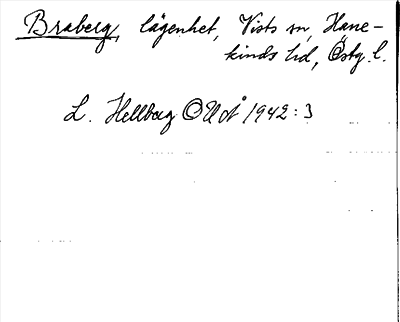 Braberg, lägenhet, Vists sn, Hane-
kinds hd, Östg. l.
L. Hellberg OUÅ 1942:3